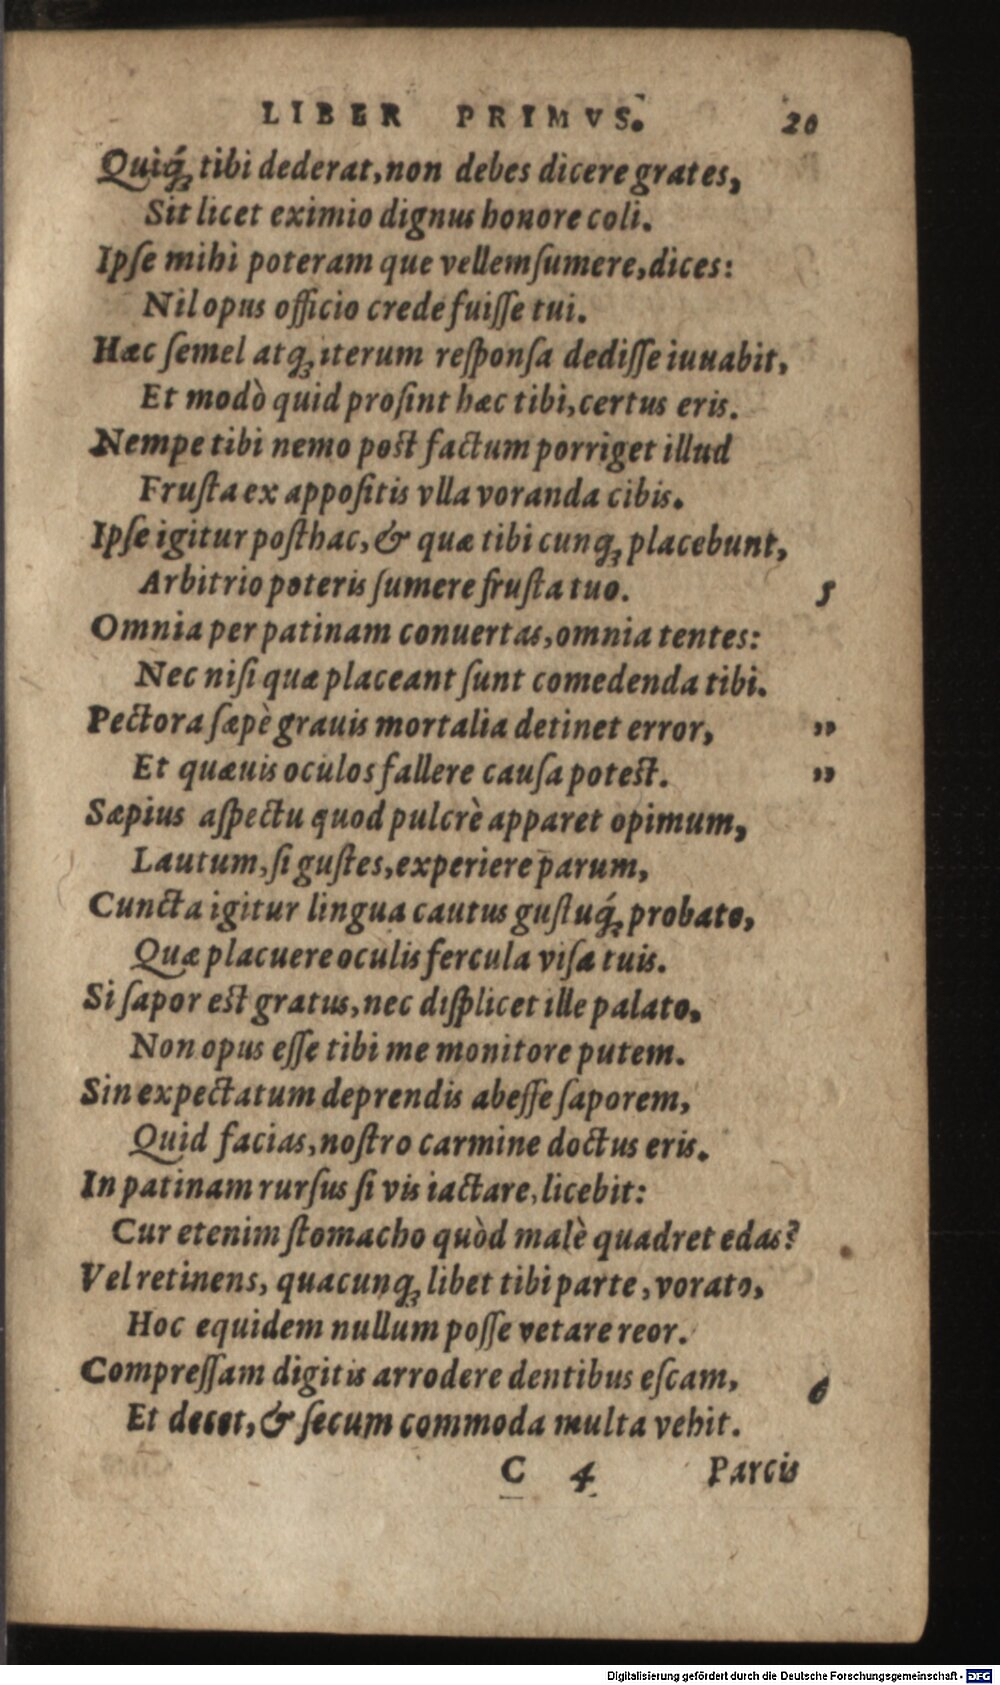 LIBER PRIMVS. 20
Quiq́ꝫ tibi dederat, non debes dicere grates,
Sit licet eximio dignus honore coli.
Ipſe mihi poteram que vellem ſumere, dices:
Nil opus officio crede fuiſſe tui.
Hæc ſemel atqꝫ iterum reſponſa dediſſe iuuabit,
Et modò quid proſint hæc tibi, certus eris.
Nempe tibi nemo post factum porriget illud
Fruſta ex appoſitis vlla voranda cibis.
Ipſe igitur poſthac, & quæ tibi cunqꝫ placebunt,
Arbitrio poteris ſumere fruſta tuo. 5
Omnia per patinam conuertas, omnia tentes:
Nec niſi quæ placeant ſunt comedenda tibi.
Pectora ſæpè grauis mortalia detinet error, ”
Et quæuis oculos fallere cauſa potest. ”
Sæpius aſpectu quod pulcrè apparet opimum,
Lautum, ſi guſtes, experiere parum,
Cuncta igitur lingua cautus guſtuq́ꝫ probato,
Quæ placuere oculis fercula viſa tuis.
Si ſapor est gratus, nec diſplicet ille palato,
Non opus eſſe tibi me monitore putem.
Sin expectatum deprendis abeſſe ſaporem,
Quid facias, noſtro carmine doctus eris.
In patinam rurſus ſi vis iactare, licebit:
Cur etenim ſtomacho quòd malè quadret edas?
Vel retinens, quacunqꝫ libet tibi parte, vorato,
Hoc equidem nullum poſſe vetare reor.
Compreſſam digitis arrodere dentibus eſcam, 6
Et decet, & ſecum commoda multa vehit.
C 4 Parcis
Digitalisierung gefördert durch die Deutsche Forschungsgemeinschaft - DFG